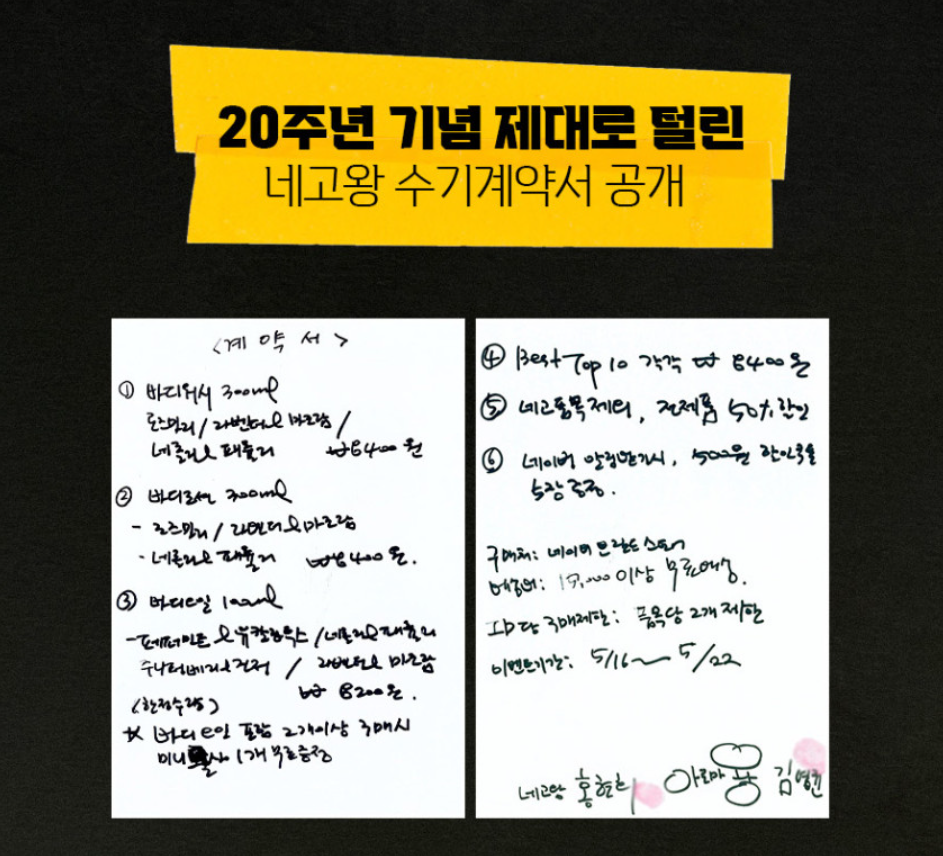 20주년 기념 제대로 털린
네고왕 수기계약서 공개
<계 약 서>
① 바디워시 300ml
로즈마리 / 라벤더&마조람 /
네롤리&패츌리 ₩8400원
② 바디로션 300ml
- 로즈마리 / 라벤더&마조람
- 네롤리&패츌리 ₩8400원.
③ 바디오일 100ml
- 페퍼민트&유칼립투스 / 네롤리&패츌리
주니퍼베리& / 라벤더&마조람
(한정수량) ₩8200원.
※ 바디오일 포함 2개이상 구매시
미니 1개 무료증정
④ Best Top 10 각각 ₩8400원
⑤ 네고품목제외, 전제품 50% 할인
⑥ 네이버 알림받기시, 500원 할인쿠폰
5장 증정.
구매처: 네이버 브랜드 스토어
배송비: 이상 무료배송.
ID당 구매제한: 품목당 2개 제한
이벤트기간: 5/16 ~ 5/22
네고왕 홍현희 아로마 김영